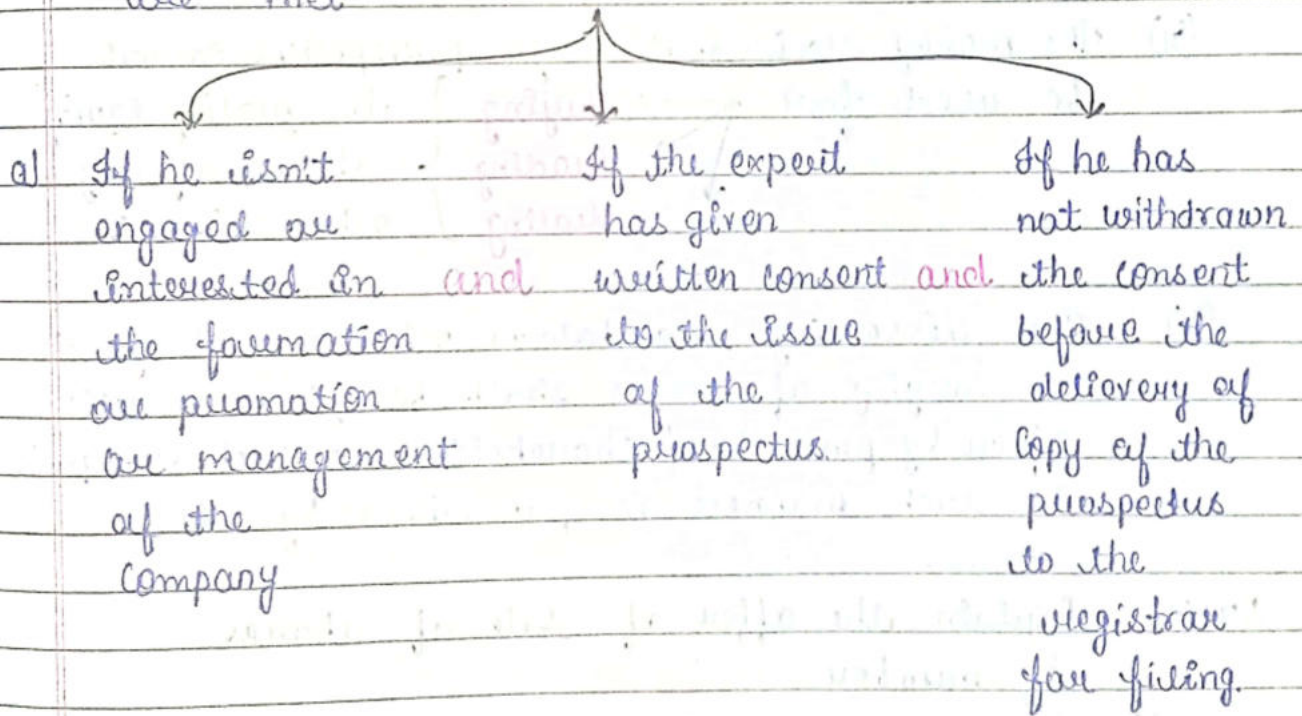 a) If he isn't
engaged or
interested in
the formation
or promotion
or management
of the
Company
and
If the expert
has given
written consent
to the issue
of the
prospectus.
and
If he has
not withdrawn
the consent
before the
delievery of
Copy of the
prospectus
to the
registrar
for filing.